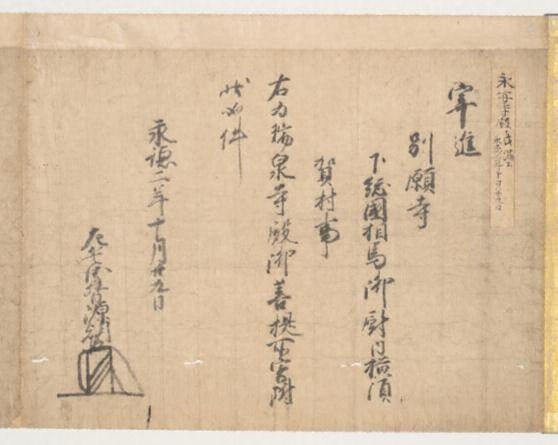 永安寺殿氏満公
永徳二年十月廿九日
寄進
別願寺
下総國相馬御厨内横須
賀村事
右為瑞泉寺殿御菩提所寄附
状如件
永徳二年十月廿九日
左兵衛督源朝臣